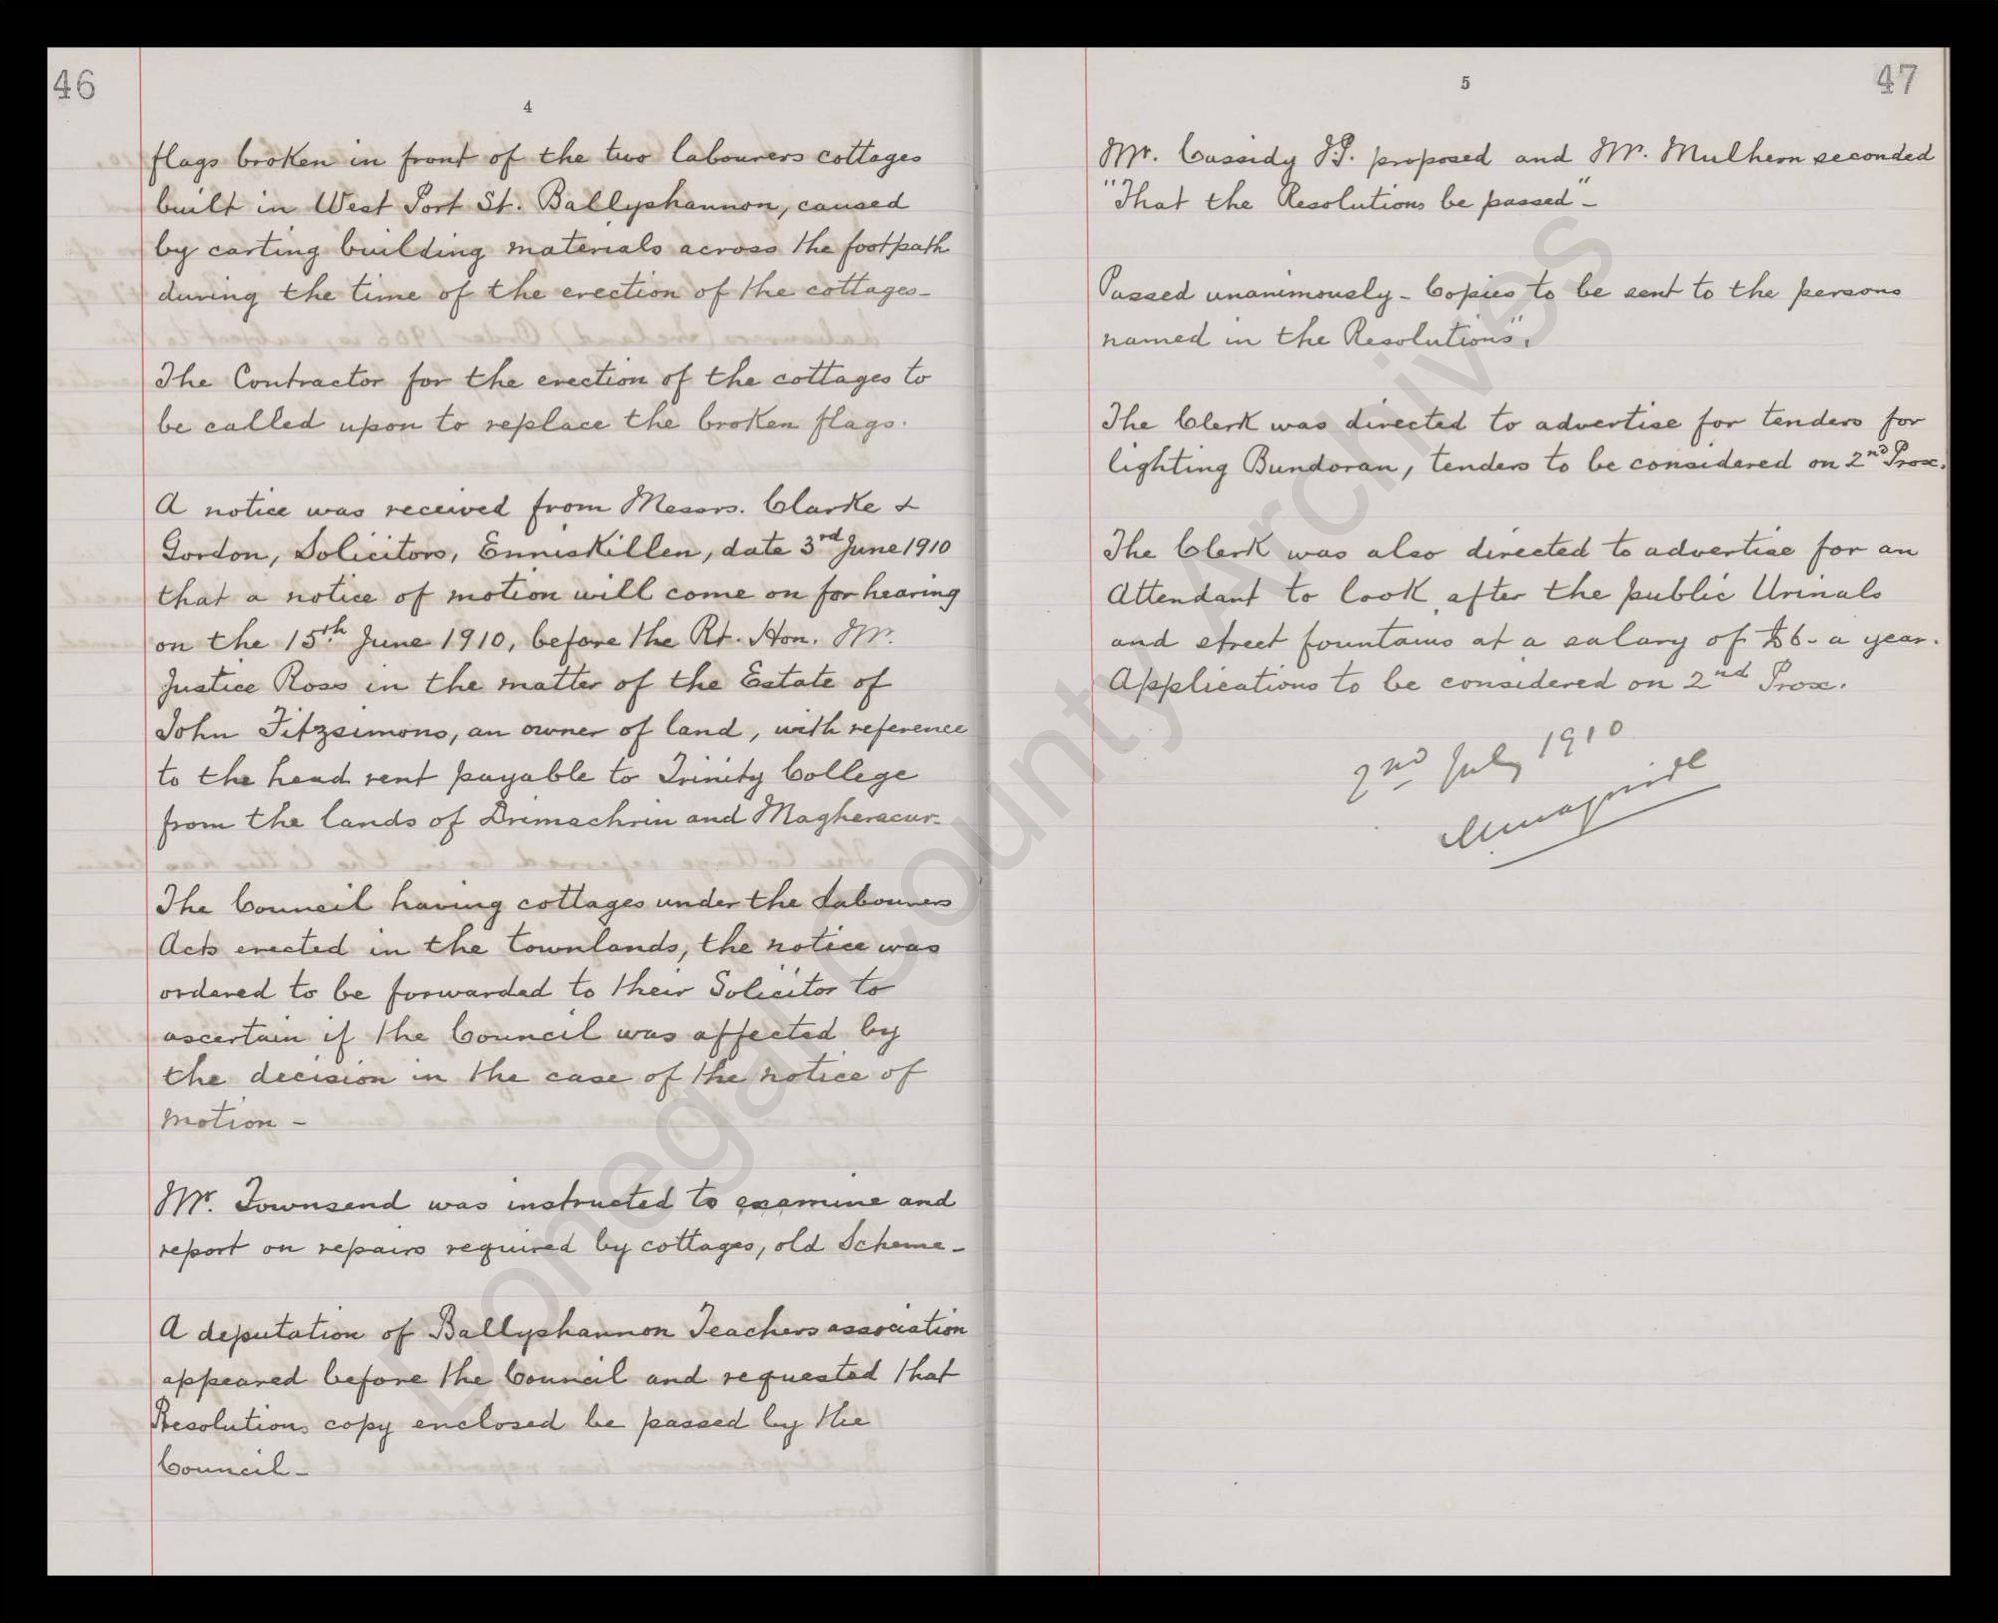 46
4
flags broken in front of the two labourers cottages
built in West Port St. Ballyshannon, caused
by carting building materials across the footpath
during the time of the erection of the cottages-
The Contractor for the erection of the cottages to
be called upon to replace the broken flags.
A notice was received from Messrs. Clarke &
Gordon, Solicitors, Enniskillen, date 3rd June 1910
that a notice of motion will come on for hearing
on the 15th June 1910, before the Rt. Hon. Mr.
Justice Ross in the matter of the Estate of
John Fitzsimons, an owner of land, with reference
to the head rent payable to Trinity College
from the lands of Drimachrin and Magheracar-
The Council having cottages under the Labourers
Acts erected in the townlands, the notice was
ordered to be forwarded to their Solicitor to
ascertain if the Council was affected by
the decision in the case of the notice of
motion -
Mr. Townsend was instructed to examine and
report on repairs required by cottages, old Scheme-
A deputation of Ballyshannon Teachers association
appeared before the Council and requested that
Resolutions copy enclosed be passed by the
Council-
47
5
Mr. Cassidy J.P. proposed and Mr. Mulhern seconded
"That the Resolutions be passed" -
Passed unanimously - Copies to be sent to the persons
named in the Resolutions".
The Clerk was directed to advertise for tenders for
lighting Bundoran, tenders to be considered on 2nd Prox.
The Clerk was also directed to advertise for an
Attendant to look after the public Urinals
and street fountains at a salary of £6- a year.
Applications to be considered on 2nd Prox.
2nd July 1910
Donegal County Archives